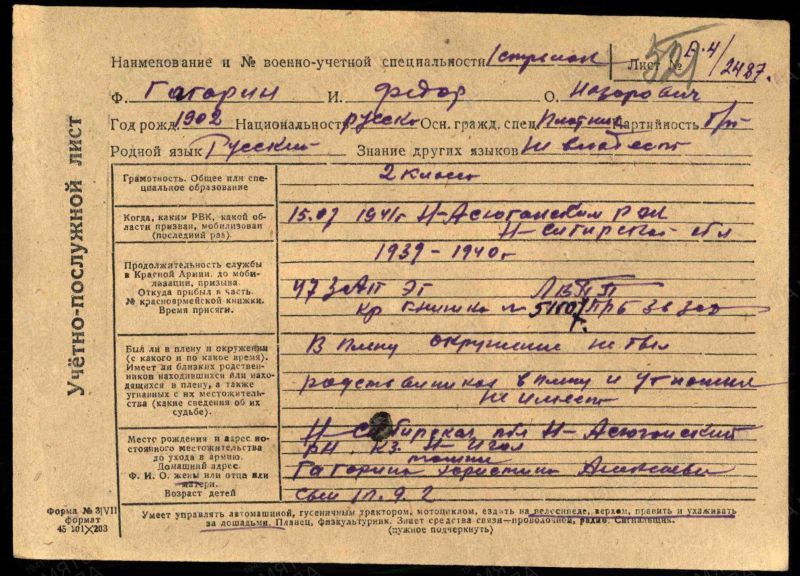 Наименование и № военно-учетной специальности стрелок Лист № 2487.
Ф. Гагарин И. Федор О. Назарович
Год рожд. 1902 Национальность русск Осн. гражд. спец. Плотник Партийность б/п
Родной язык Русский Знание других языков Не владеет
Учётно-послужной лист
Грамотность. Общее или специальное образование
2 класса
Когда, каким РВК, какой области призван, мобилизован (последний раз).
15.07 1941г Н-Асюганским РВК
Н-Сибирской обл
Продолжительность службы в Красной Армии до мобилизации, призыва. Откуда прибыл в часть. № красноармейской книжки. Время присяги.
1939-1940г
473 АП ЭГ
Кр книжка №
Был ли в плену и окружении (с какого и по какое время). Имеет ли близких родственников находившихся или находящихся в плену, а также угнанных с их местожительства (какие сведения об их судьбе).
В плену окружение не был
родственников в плену и
не имеет
Место рождения и адрес постоянного местожительства до ухода в армию. Домашний адрес. Ф. И. О. жены или отца или матери. Возраст детей
Н-Сибирская обл Н-Асюганский
рн. кз. Н-
Гагарина Христина
сын
Форма № 3|VII
формат
45 101×203
Умеет управлять автомашиной, гусеничным трактором, мотоциклом, ездить на велосипеде, верхом, править и ухаживать
за лошадьми. Пловец, физкультурник. Знает средства связи—проволочной, радио. Сигнальщик.
(нужное подчеркнуть)